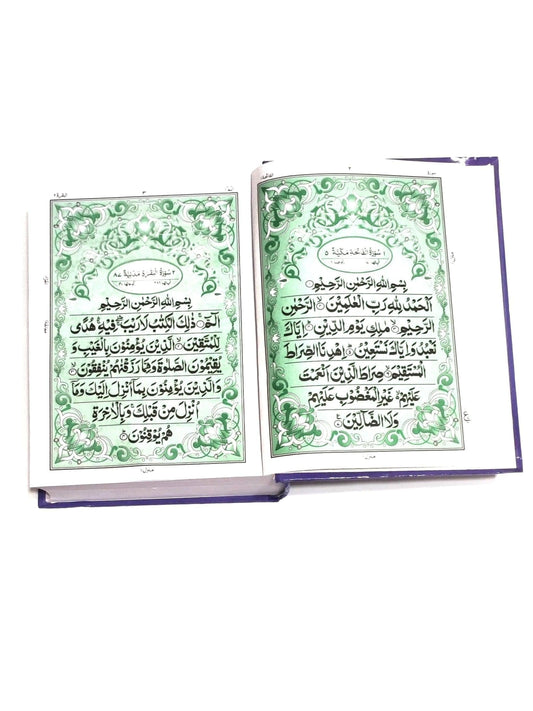 ٢
١ سُورَةُ الْفَاتِحَةِ مَكِّيَّةٌ ٥
بِسْمِ اللهِ الرَّحْمٰنِ الرَّحِيْمِ
اَلْحَمْدُ لِلّٰهِ رَبِّ الْعٰلَمِيْنَ ۙ الرَّحْمٰنِ
الرَّحِيْمِ ۙ مٰلِكِ يَوْمِ الدِّيْنِ ۗ اِيَّاكَ
نَعْبُدُ وَاِيَّاكَ نَسْتَعِيْنُ ۗ اِهْدِنَا الصِّرَاطَ
الْمُسْتَقِيْمَ ۙ صِرَاطَ الَّذِيْنَ اَنْعَمْتَ
عَلَيْهِمْ ۙ غَيْرِ الْمَغْضُوْبِ عَلَيْهِمْ
وَلَا الضَّآلِّيْنَ
منزل ١
البقرة ٢
٣
٢ سُورَةُ الْبَقَرَةِ مَدَنِيَّةٌ ٨٧
بِسْمِ اللهِ الرَّحْمٰنِ الرَّحِيْمِ
الٓمّٓ ۚ ذٰلِكَ الْكِتٰبُ لَا رَيْبَ ۛ فِيْهِ ۛ هُدًى
لِّلْمُتَّقِيْنَ ۙ الَّذِيْنَ يُؤْمِنُوْنَ بِالْغَيْبِ وَ
يُقِيْمُوْنَ الصَّلٰوةَ وَمِمَّا رَزَقْنٰهُمْ يُنْفِقُوْنَ ۙ
وَالَّذِيْنَ يُؤْمِنُوْنَ بِمَآ اُنْزِلَ اِلَيْكَ وَمَآ
اُنْزِلَ مِنْ قَبْلِكَ ۚ وَبِالْاٰخِرَةِ
هُمْ يُوْقِنُوْنَ
منزل ١